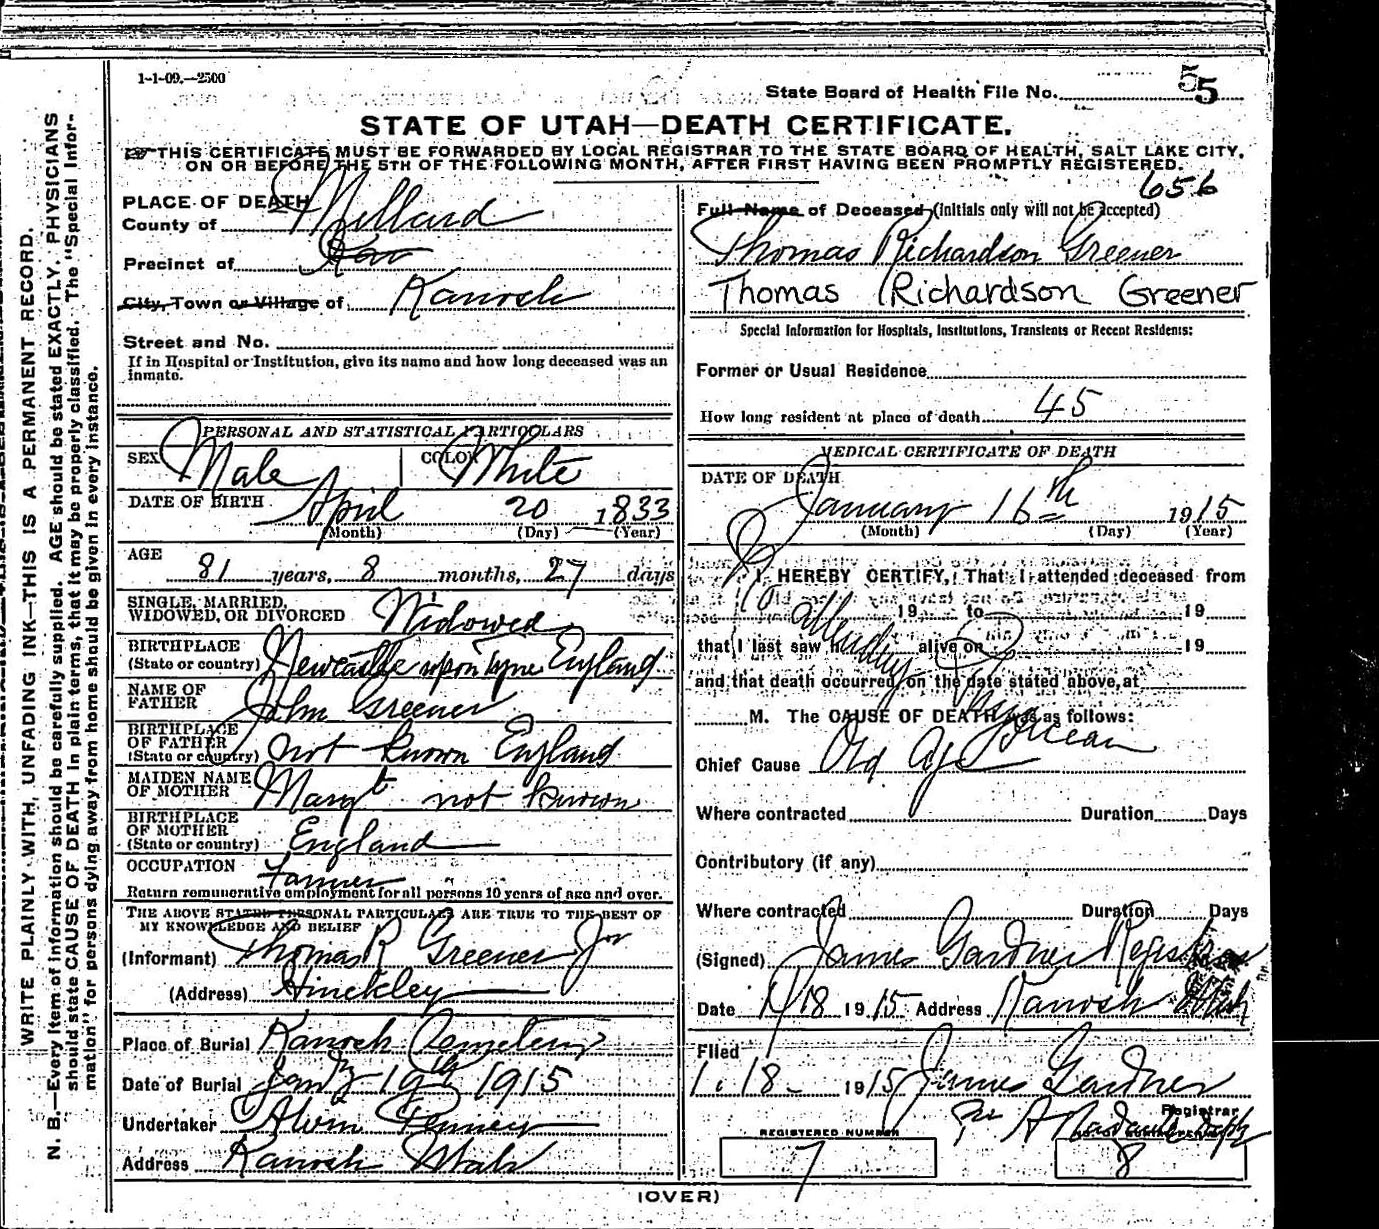 1-1-09.—2500
State Board of Health File No. 55
STATE OF UTAH—DEATH CERTIFICATE.
THIS CERTIFICATE MUST BE FORWARDED BY LOCAL REGISTRAR TO THE STATE BOARD OF HEALTH, SALT LAKE CITY,
ON OR BEFORE THE 5TH OF THE FOLLOWING MONTH, AFTER FIRST HAVING BEEN PROMPTLY REGISTERED.
656
PLACE OF DEATH
County of Millard
Precinct of
City, Town or Village of Kanosh
Street and No.
If in Hospital or Institution, give its name and how long deceased was an
inmate.
PERSONAL AND STATISTICAL PARTICULARS
SEX Male COLOR White
DATE OF BIRTH April 20 1833
(Month) (Day) (Year)
AGE 81 years, 8 months, 27 days
SINGLE, MARRIED,
WIDOWED, OR DIVORCED Widowed
BIRTHPLACE
(State or country) Newcastle upon tyne England
NAME OF
FATHER John Greener
BIRTHPLACE
OF FATHER
(State or country) not known England
MAIDEN NAME
OF MOTHER Margt not known
BIRTHPLACE
OF MOTHER
(State or country) England
OCCUPATION Farmer
Return remunerative employment for all persons 10 years of age and over.
THE ABOVE STATED PERSONAL PARTICULARS ARE TRUE TO THE BEST OF
MY KNOWLEDGE AND BELIEF
(Informant) Thomas R Greener Jor
(Address) Hinckley
Place of Burial Kanosh Cemetery
Date of Burial Jany 19th 1915
Undertaker Alvin Penney
Address Kanosh Utah
Full Name of Deceased (initials only will not be accepted)
Thomas Richardson Greener
Thomas Richardson Greener
Special Information for Hospitals, Institutions, Transients or Recent Residents:
Former or Usual Residence
How long resident at place of death 45
MEDICAL CERTIFICATE OF DEATH
DATE OF DEATH
January 16th 1915
(Month) (Day) (Year)
I HEREBY CERTIFY, That I attended deceased from
19 to 19
that I last saw h alive on 19
and that death occurred, on the date stated above, at
M. The CAUSE OF DEATH was as follows:
No attending Physician
Chief Cause Old Age
Where contracted Duration Days
Contributory (if any)
Where contracted Duration Days
(Signed) James Gardner Registrar
Date 1/18 1915 Address Kanosh Utah
Filed
1. 18- 1915 James Gardner
Registrar
REGISTERED NUMBER
7
8
(OVER)
WRITE PLAINLY WITH UNFADING INK—THIS IS A PERMANENT RECORD.
N. B.—Every item of information should be carefully supplied. AGE should be stated EXACTLY. PHYSICIANS
should state CAUSE OF DEATH in plain terms, that it may be properly classified. The "Special Infor-
mation" for persons dying away from home should be given in every instance.